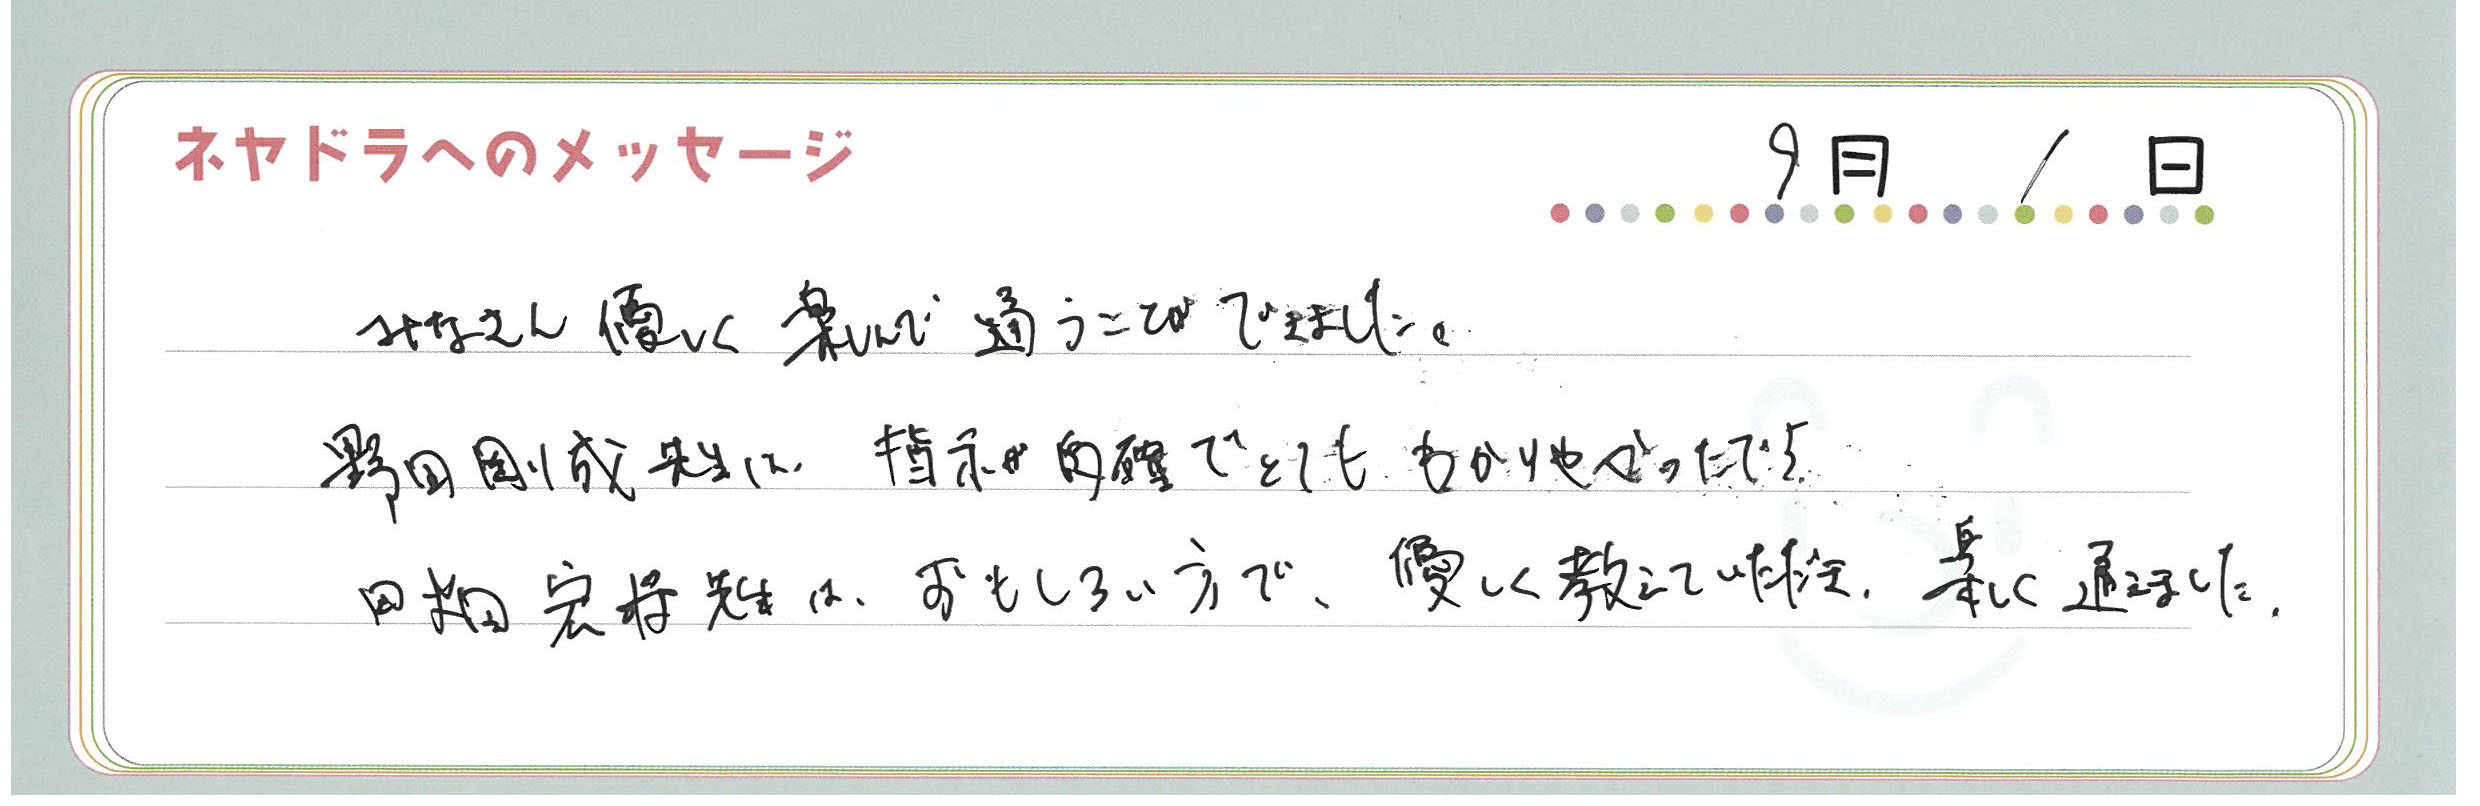 ネヤドラへのメッセージ
9月 1日
みなさん優しく楽しんで通うことができました。
野田剛成先生は、指示が的確でとてもわかりやすかったです。
田畑宏将先生は、おもしろい方で、優しく教えていただき、楽しく通えました。